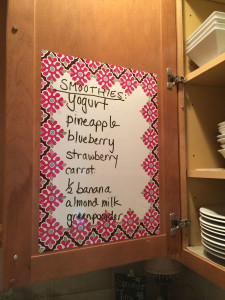 SMOOTHIES:
Yogurt
pineapple
blueberry
strawberry
carrot
½ banana
almond milk
greenpowder